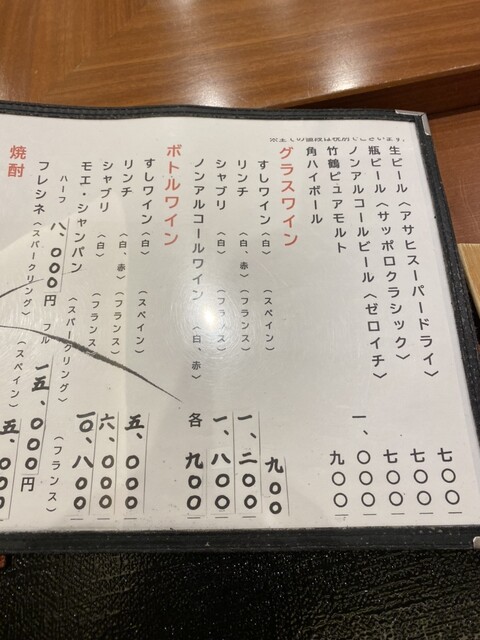 生ビール〈アサヒスーパードライ〉 七〇〇
瓶ビール〈サッポロクラシック〉 七〇〇
ノンアルコールビール〈ゼロイチ〉 七〇〇
竹鶴ピュアモルト 一、〇〇〇
角ハイボール 九〇〇
グラスワイン
すしワイン〈白〉〈スペイン〉 九〇〇
リンチ〈白、赤〉〈フランス〉 一、二〇〇
シャブリ〈白〉〈フランス〉 一、八〇〇
ノンアルコールワイン〈白、赤〉 各 九〇〇
ボトルワイン
すしワイン〈白〉〈スペイン〉 五、〇〇〇
リンチ〈白、赤〉〈フランス〉 六、〇〇〇
シャブリ〈白〉〈フランス〉 一〇、八〇〇
モエ・シャンパン〈スパークリング〉〈フランス〉
ハーフ 八、〇〇〇円 フル 一五、〇〇〇円
フレシネ〈スパークリング〉〈スペイン〉 五、〇〇〇
焼酎